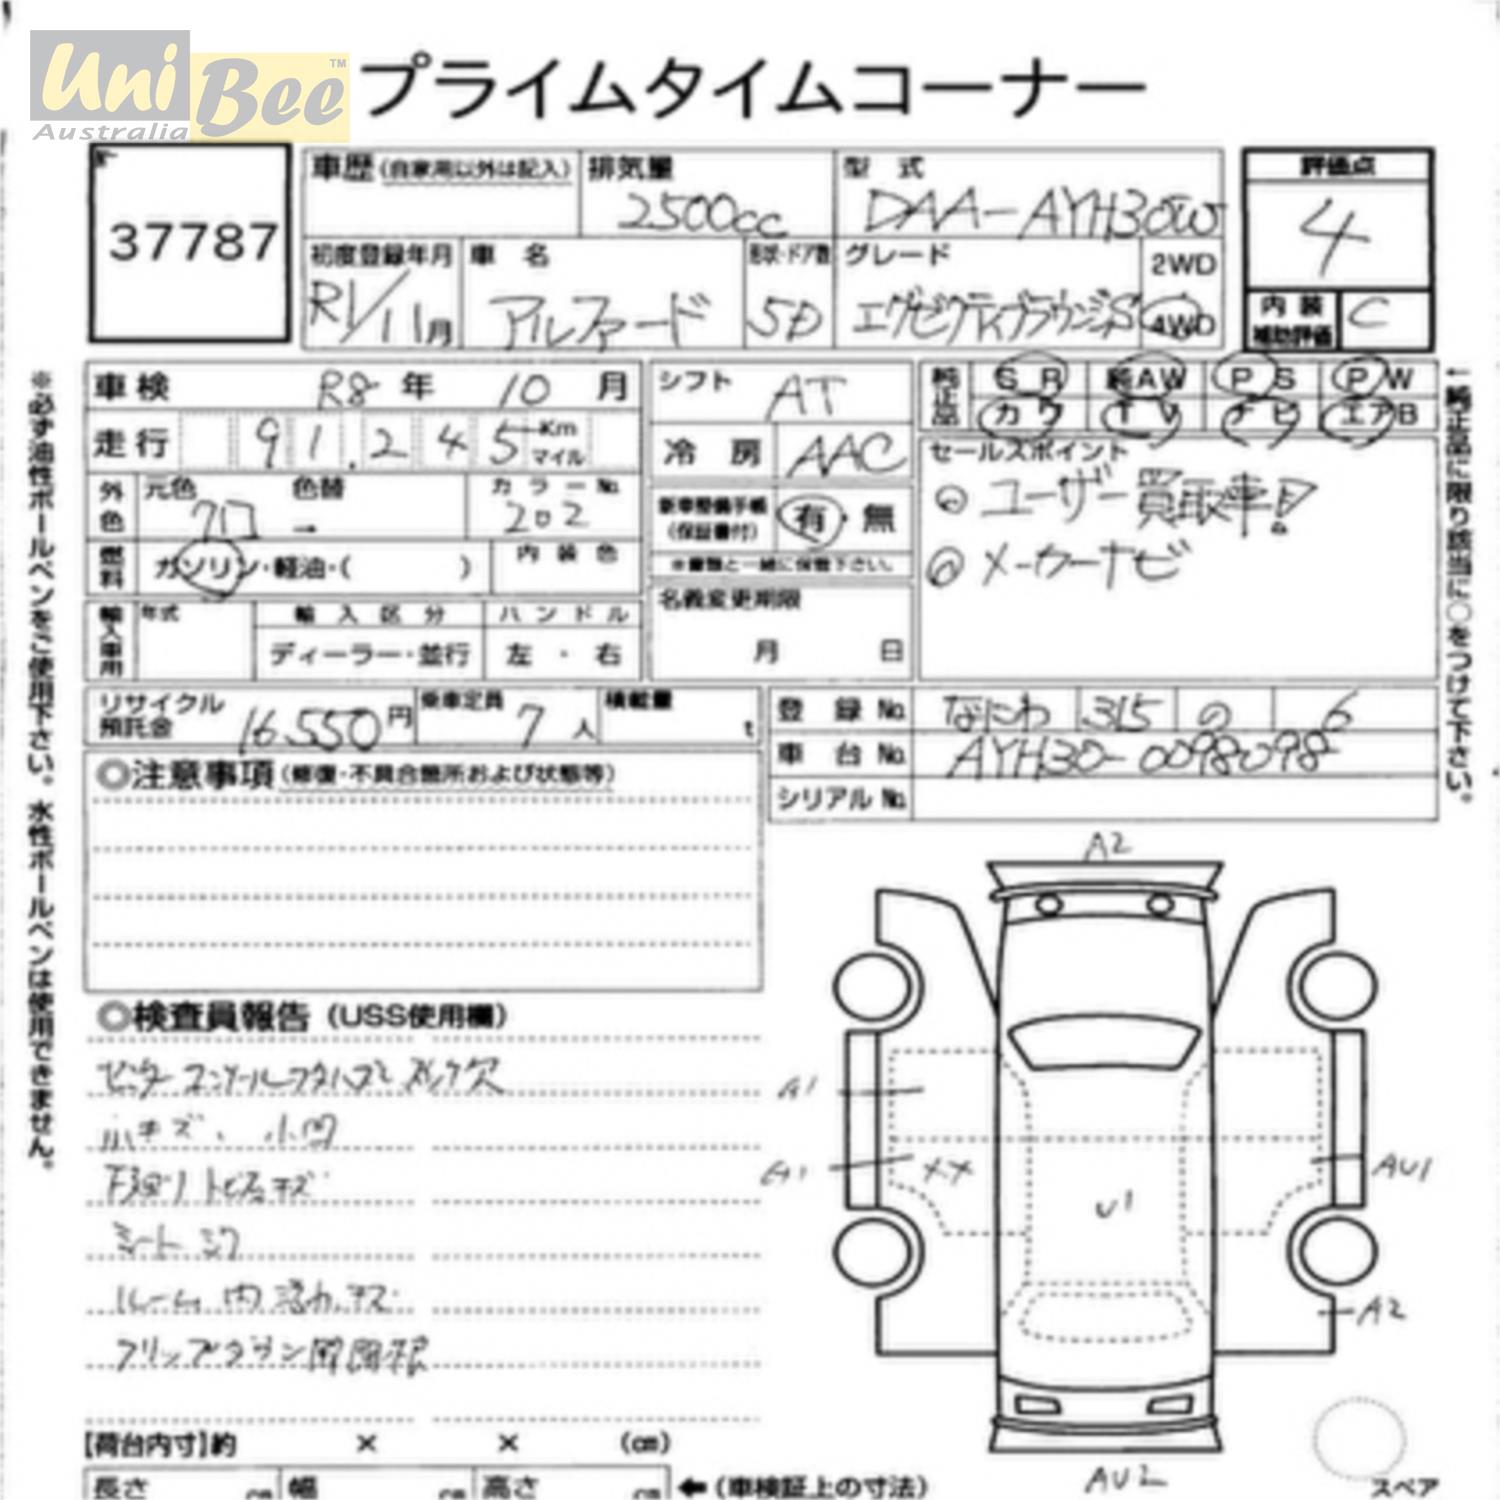 Uni Bee™
Australia
プライムタイムコーナー
37787
車歴(自家用以外は記入)
排気量
2500cc
型式
DAA-AYH30W
評価点
4
初度登録年月
R1/11月
車名
アルファード
形状・ドア数
5D
グレード
エグゼクティブラウンジS
2WD
4WD
内装
補助評価
C
車検 R8年 10月
走行 91.245 Km
マイル
外色
元色
クロ
色替
→
カラーNo.
202
燃料
ガソリン・軽油・( )
内装色
輸入車用
年式
輸入区分
ディーラー・並行
ハンドル
左・右
シフト AT
冷房 AAC
新車整備手帳
(保証書付)
有・無
※書類と一緒に保管下さい。
名義変更期限
月 日
純正品
SR 純AW PS PW
カワ TV ナビ エアB
セールスポイント
◎ユーザー買取車!!
◎メーカーナビ
←純正品に限り該当に○をつけて下さい。
※必ず油性ボールペンをご使用下さい。水性ボールペンは使用できません。
リサイクル
預託金
16,550円
乗車定員
7人
積載量
t
登録No. なにわ 315 の 6
車台No. AYH30-0098098
シリアルNo.
◎注意事項(修復・不具合箇所および状態等)
◎検査員報告(USS使用欄)
小キズ、小凹
下廻り
シート
ルーム内 キズ
フリップダウン
A2
A1
A1
XX
U1
AU1
A2
AU2
スペア
【荷台内寸】約 × × (cm)
長さ cm 幅 cm 高さ cm ←(車検証上の寸法)